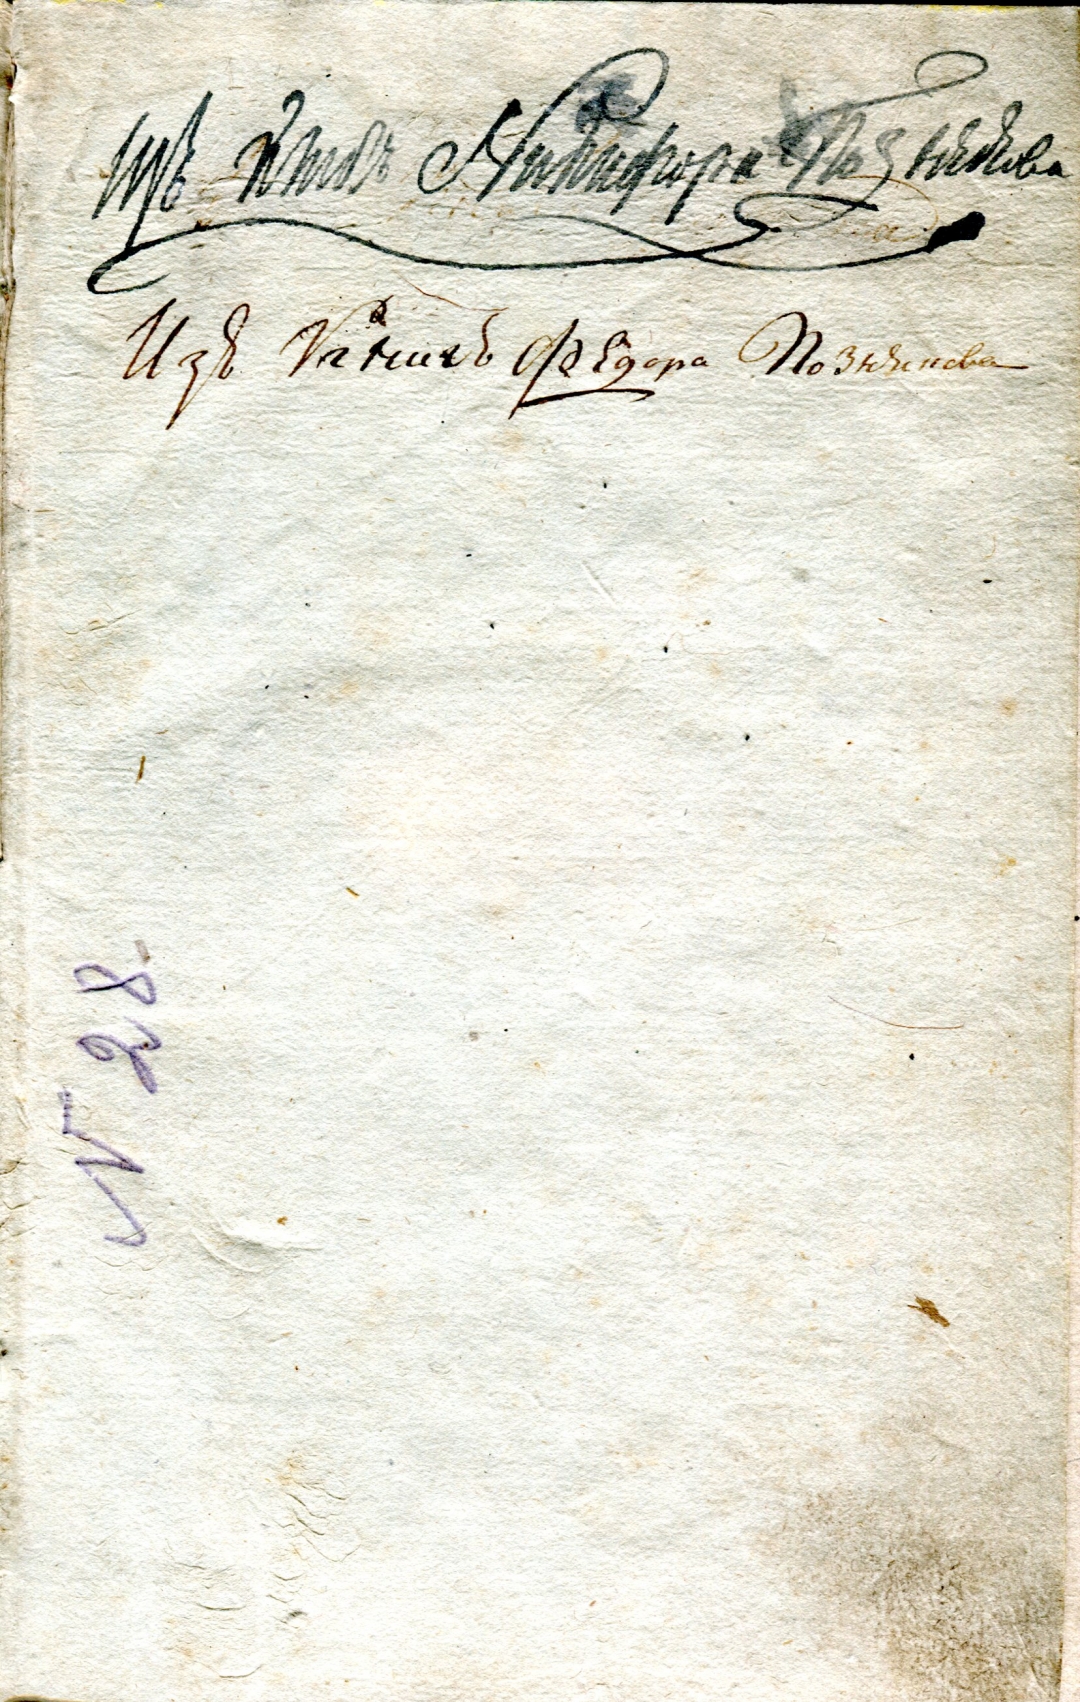 Изъ книгъ Никифора Познякова
Изъ Книгъ Федора Познякова
№ 28.